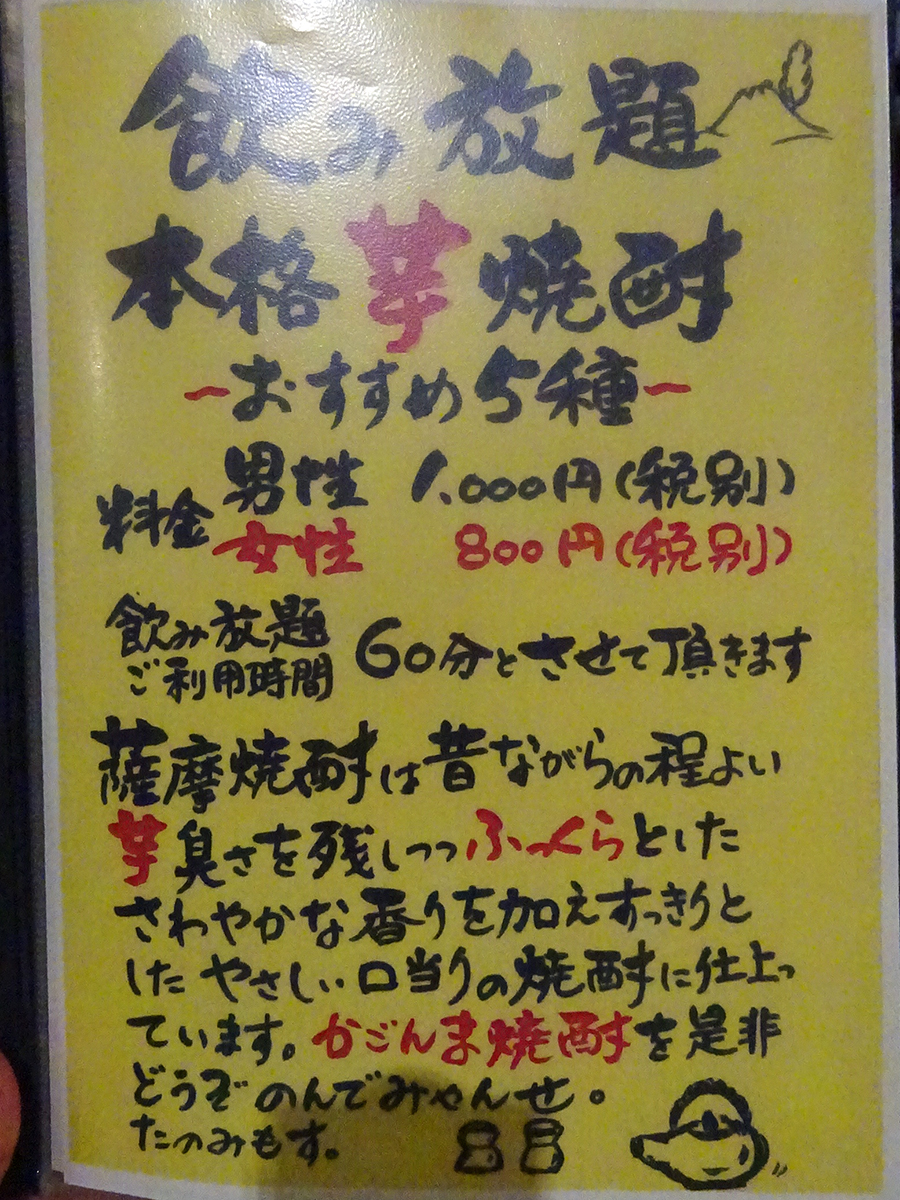 飲み放題
本格芋焼酎
～おすすめ5種～
料金 男性 1,000円(税別)
女性 800円(税別)
飲み放題
ご利用時間 60分とさせて頂きます
薩摩焼酎は昔ながらの程よい
芋臭さを残しつつふっくらとした
さわやかな香りを加えすっきりと
したやさしい口当りの焼酎に仕上っ
ています。かごんま焼酎を是非
どうぞのんでみゃんせ。
たのみもす。